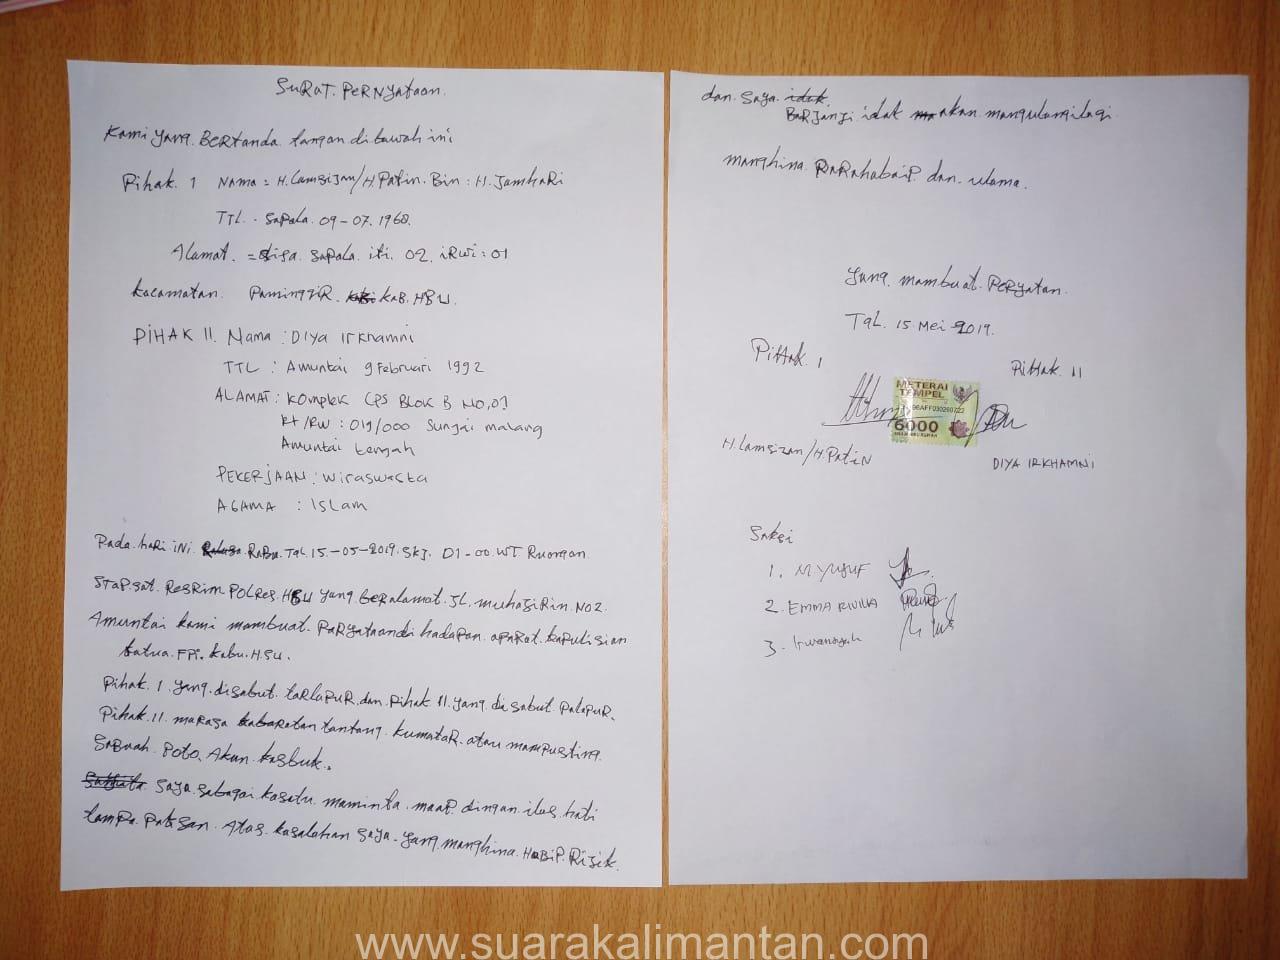 Surat. Pernyataan.
Kami yang. Bertanda. tangan. di bawah ini
Pihak. 1 Nama = H. Lamsijan/H. Patin. Bin : H. Jamhari
TTL. Sapala. 09-07. 1968.
Alamat. = disa. Sapala. iti. 02. iRwi : 01
Kacamatan. Paminggir. KAB. HSU.
PIHAK II. Nama : DIYA IRKHAMNI
TTL : Amuntai 9 Februari 1992
ALAMAT : Komplek CPS BLOK B NO, 01
Rt/RW : 019/000 Sungai malang
Amuntai tengah
PEKERJAAN : Wiraswasta
AGAMA : ISLam
Pada. hari. iNi. RaBu. Tgl. 15.-05-2019. SKJ. 01-00. WT Ruangan.
STAP. Sat. Resrim POLRes. HSU yang beralamat. JL. muhajirin. NO 2.
Amuntai kami mambuat. Paryataandi hadapan. aparat. kapulisian
katua. FPI. Kabu. H.SU.
Pihak. I. yang. disabut. tarlapur. dan. Pihak II. yang. di sabut Palapur.
Pihak. II. marasa kabaratan tantang. kumatar. atau mamposting.
Sabuah. Poto. Akun. kasbuk..
Saya. sabagai kasatu. maminta. maap. dingan. iklas. hati
tampa. Paksan. Atas. kasalahan saya. yang. manghina. HaBiP. Rijik.
dan. Saya. idak.
BARJANJi. idak akan. mangulangilagi.
manghina. PaRahabaiP. dan. ulama.
yang. mambuat. Peryatan.
TgL. 15. Mei 2019.
PiHAK. 1
PiHAK. II
METERAI
TEMPEL
96AFF030260722
6000
ENAM RIBU RUPIAH
H. Lamsizan/H. Patin
DIYA IRKHAMNI
Saksi
1. M YUSUF
2. EMMA RIVILIA
3. Irwansyah
www.suarakalimantan.com